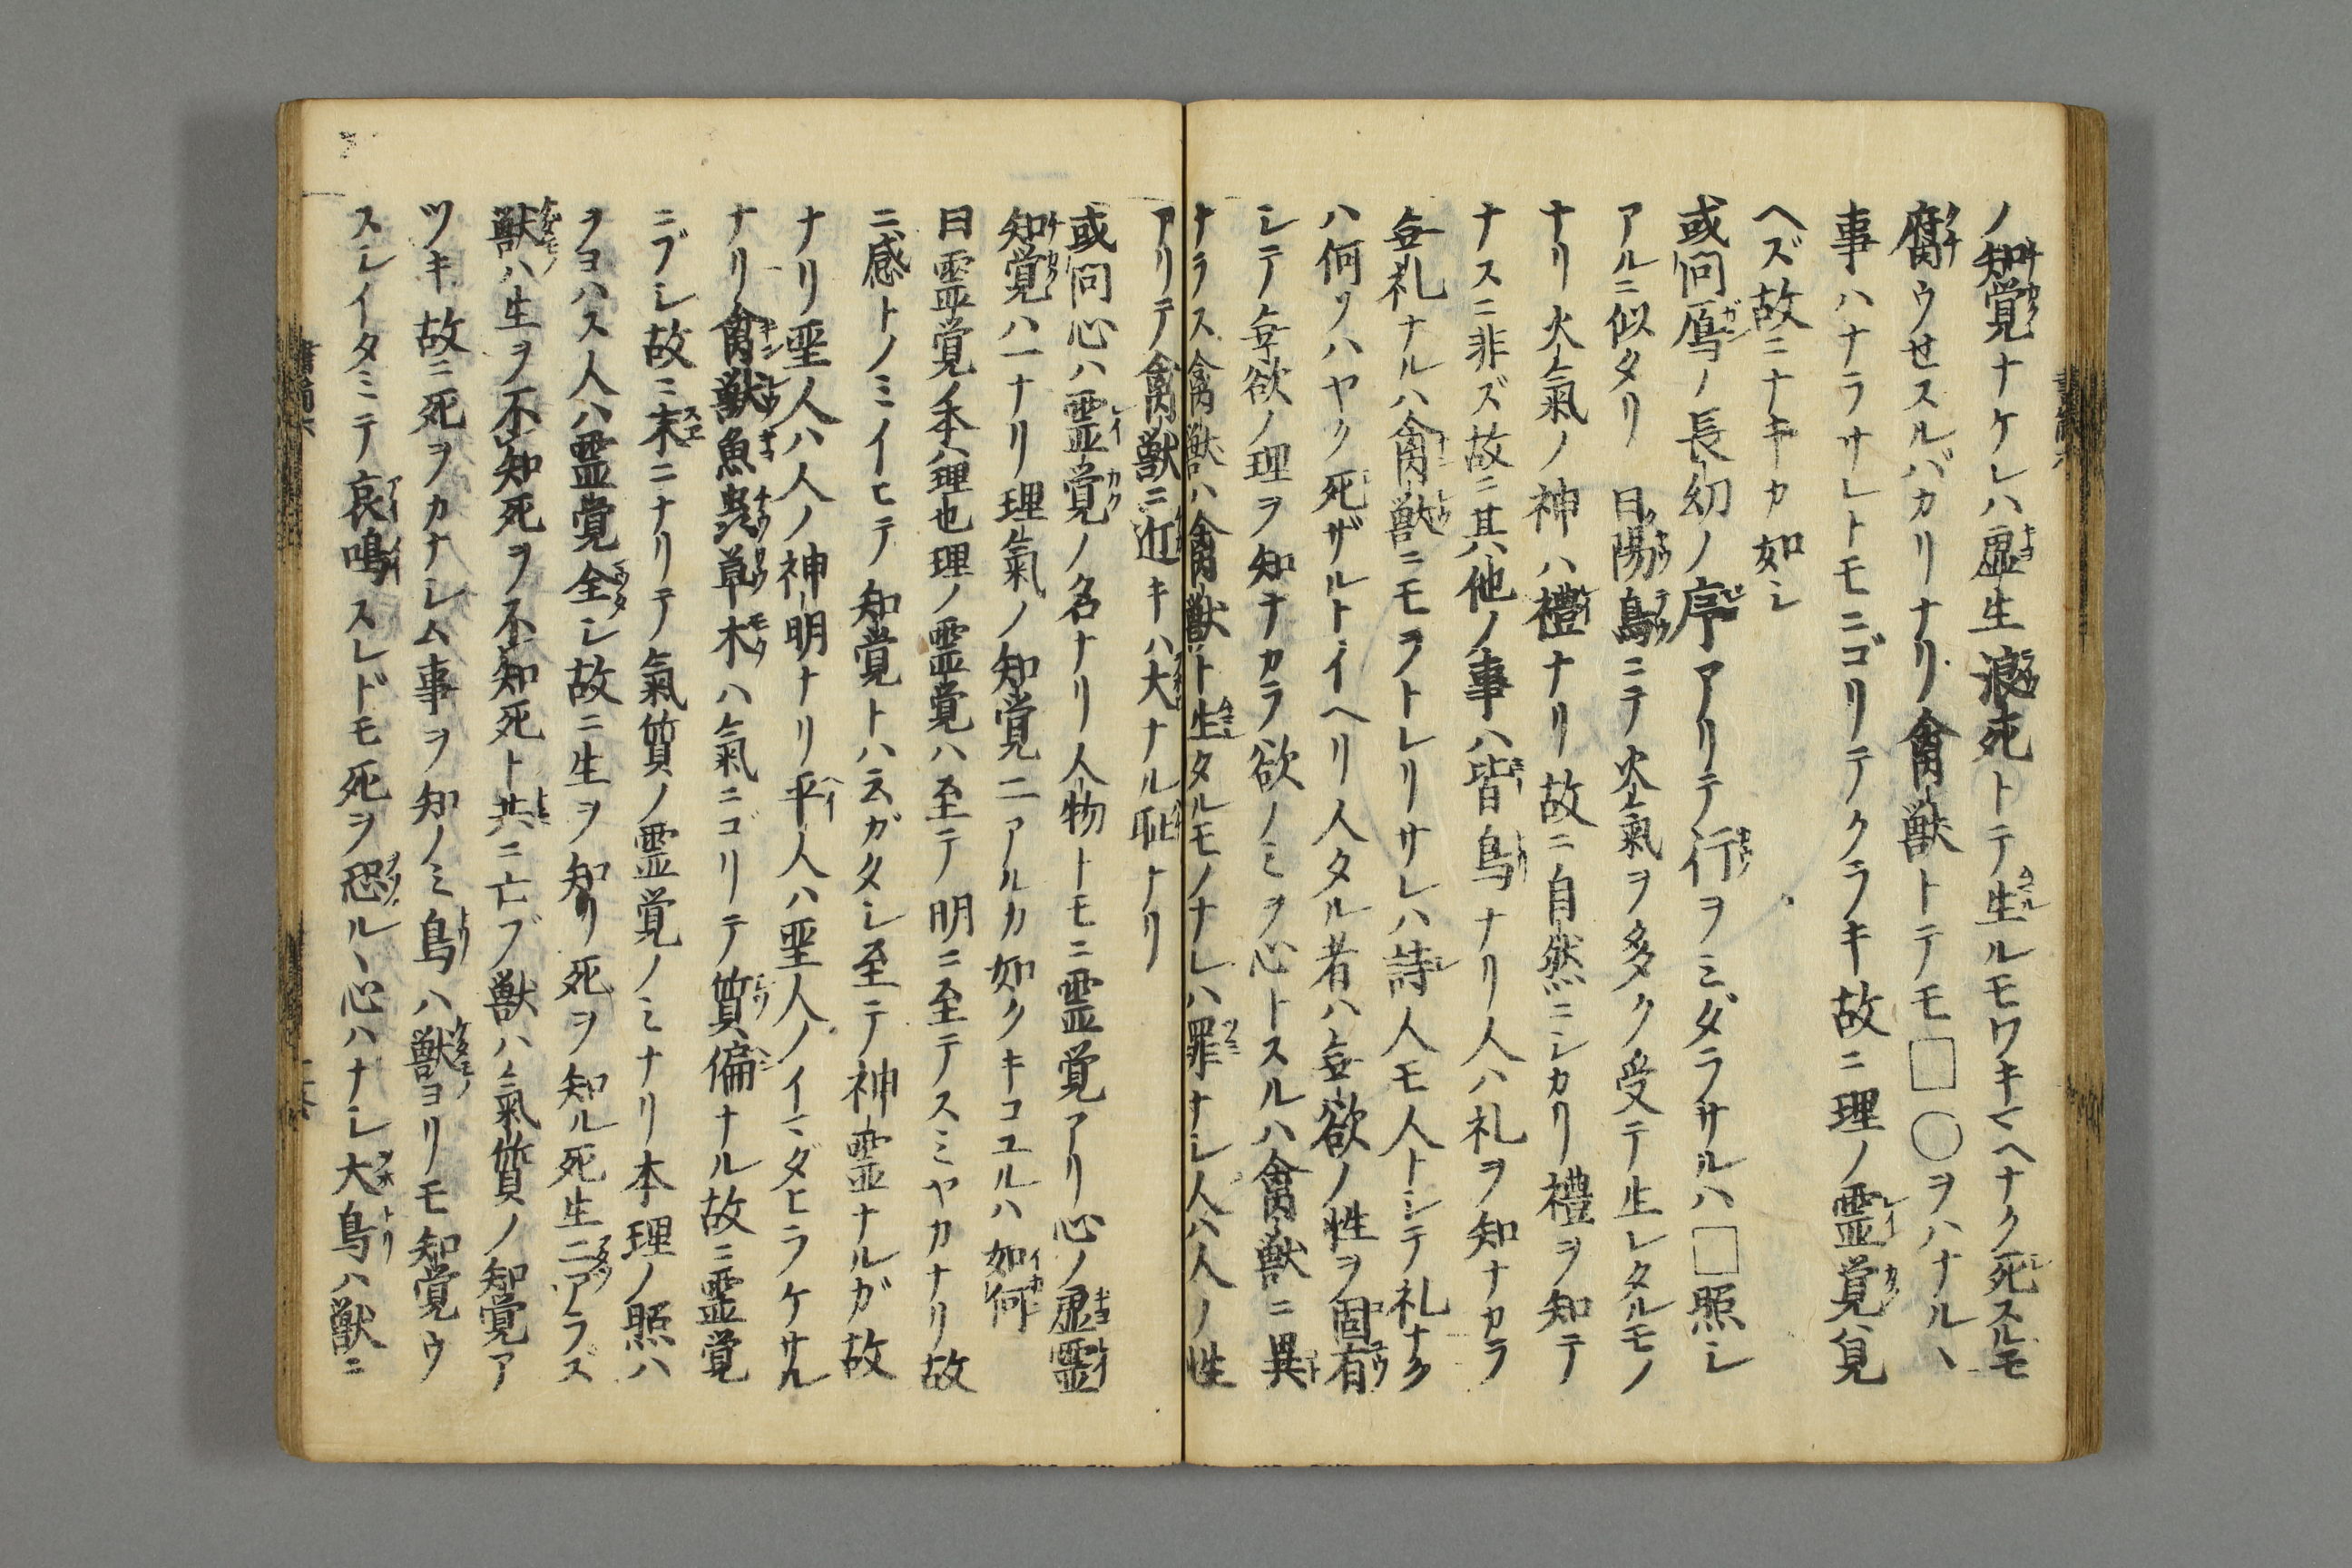 ノ知覚ナケレハ虚生浪死トテ生ルモワキマヘナク死スルモ
腐ウセスルバカリナリ禽獣トテモ□○ヲハナルヽ
事ハナラサレトモニゴリテクラキ故ニ理ノ霊覚見
ヘズ故ニナキカ如シ
或問鴈ノ長幼ノ序アリテ行ヲミダラサルハ□照シ
アルニ似タリ 曰陽鳥ニテ火氣ヲ多ク受テ生レタルモノ
ナリ火氣ノ神ハ禮ナリ故ニ自然ニシカリ禮ヲ知テ
ナスニ非ズ故ニ其他ノ事ハ皆鳥ナリ人ハ礼ヲ知ナカラ
無礼ナルハ禽獣ニモヲトレリサレハ詩人モ人トシテ礼ナク
ハ何ソハヤク死ザルトイヘリ人タル者ハ無欲ノ性ヲ固有
シテ無欲ノ理ヲ知ナカラ欲ノミヲ心トスルハ禽獣ニ異
ナラス禽獣ハ禽獣ト生タルモノナレハ罪ナシ人ハ人ノ性
アリテ禽獣ニ近キハ大ナル耻ナリ
或問心ハ霊覚ノ名ナリ人物トモニ霊覚アリ心ノ虚霊
知覚ハ一ナリ理氣ノ知覚二アルカ如クキコユルハ如何
曰霊覚ノ本ハ理也理ノ霊覚ハ至テ明ニ至テスミヤカナリ故
ニ感トノミイヒテ知覚トハ云ガタシ至テ神霊ナルガ故
ナリ聖人ハ人ノ神明ナリ平人ハ聖人ノイマダヒラケサル
ナリ禽獣魚虫草木ハ氣ニゴリテ質偏ナル故ニ霊覚
ニブシ故ニ末ニナリテ氣質ノ霊覚ノミナリ本理ノ照ハ
ヲヨハス人ハ霊覚全シ故ニ生ヲ知リ死ヲ知ル死生ニアラズ
獣ハ生ヲ不知死ヲ不知死ト共ニ亡ブ獣ハ氣質ノ知覚ア
ツキ故ニ死ヲカナシム事ヲ知ノミ鳥ハ獣ヨリモ知覚ウ
スレイタミテ哀鳴スレドモ死ヲ恐ルヽ心ハナシ大鳥ハ獣ニ